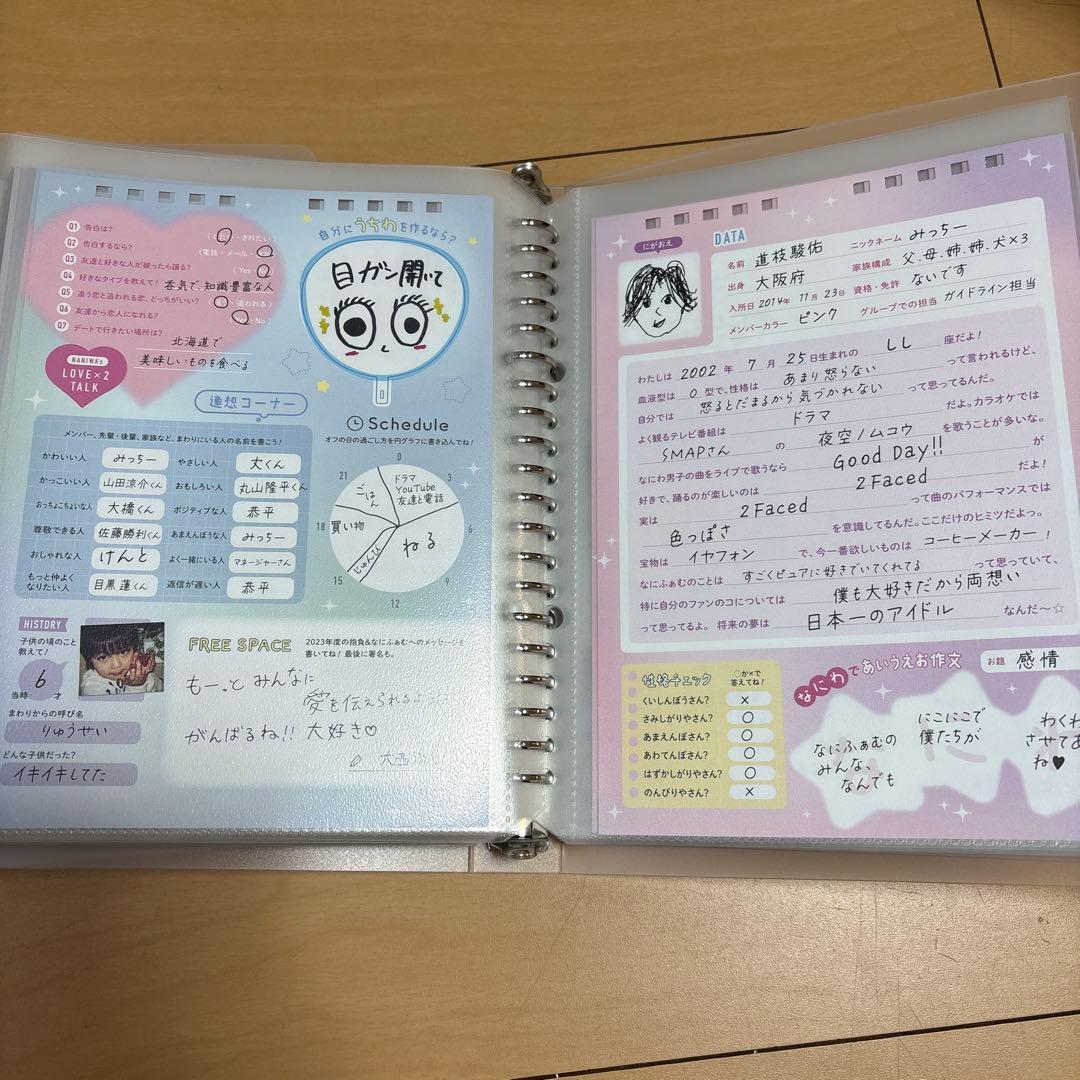 Q1 告白は?
(したい・されたい)
Q2 告白するなら?
(電話・メール・
Q3 友達と好きな人が被ったら譲る?
(Yes・No)
Q4 好きなタイプを教えて!
呑気で、知識豊富な人
Q5 追う恋と追われる恋、どっちがいい?
・追われる)
Q6 友達から恋人になれる?
(Yes・No)
Q7 デートで行きたい場所は?
北海道で
美味しいものを食べる
NANIWA's
LOVE×2
TALK
自分にうちわを作るなら?
目ガン開いて
連想コーナー
メンバー、先輩・後輩、家族など、まわりにいる人の名前を書こう!
かわいい人 みっちー やさしい人 丈くん
かっこいい人 山田涼介くん おもしろい人 丸山隆平くん
おっちょこちょいな人 大橋くん ポジティブな人 恭平
尊敬できる人 佐藤勝利くん あまえんぼうな人 みっちー
おしゃれな人 けんと よく一緒にいる人 マネージャーさん
もっと仲よく
なりたい人 目黒蓮くん 返信が遅い人 恭平
Schedule
オフの日の過ごし方を円グラフに書き込んでね!
0
3
6
9
12
15
18
21
ドラマ
YouTube
友達と電話
ねる
じゅんび
買い物
ごはん
HISTORY
子供の頃のこと
教えて!
当時 6 才
まわりからの呼び名
りゅうせい
どんな子供だった?
イキイキしてた
FREE SPACE
2023年度の抱負&なにふぁむへのメッセージを
書いてね! 最後に署名も。
もーっと みんなに
愛を伝えられる
がんばるね!! 大好き♡
にがおえ
DATA
名前 道枝駿佑 ニックネーム みっちー
出身 大阪府 家族構成 父.母.姉.姉.犬×3
入所日 2014年 11月 23日 資格・免許 ないです
メンバーカラー ピンク グループでの担当 ガイドライン担当
わたしは 2002 年 7 月 25 日生まれの しし 座だよ!
血液型は O 型で、性格は あまり怒らない って言われるけど、
自分では 怒るとだまるから気づかれない って思ってるんだ。
よく観るテレビ番組は ドラマ だよ。カラオケでは
SMAPさん の 夜空ノムコウ を歌うことが多いな。
なにわ男子の曲をライブで歌うなら Good Day!! が
好きで、踊るのが楽しいのは 2Faced だよ!
実は 2Faced って曲のパフォーマンスでは
色っぽさ を意識してるんだ。ここだけのヒミツだよっ。
宝物は イヤフォン で、今一番欲しいものは コーヒーメーカー !
なにふぁむのことは すごくピュアに好きでいてくれてる って思っていて、
特に自分のファンのコについては 僕も大好きだから両想い
って思ってるよ。 将来の夢は 日本一のアイドル なんだ〜☆
性格チェック
○か×で
答えてね!
くいしんぼうさん? ×
さみしがりやさん? ○
あまえんぼさん? ○
あわてんぼさん? ○
はずかしがりやさん? ○
のんびりやさん? ×
なにわであいうえお作文
お題 感情
なにふぁむの
みんな、
なんでも
にこにこで
僕たちが
わくわ
させてあ
ね♥